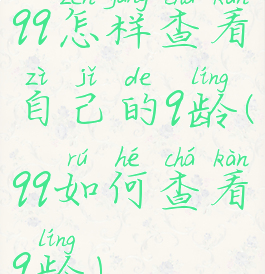 zěn yàng chá kàn
QQ怎样查看
zì jǐ de líng
自己的Q龄(
rú hé chá kàn
QQ如何查看
líng
Q龄)